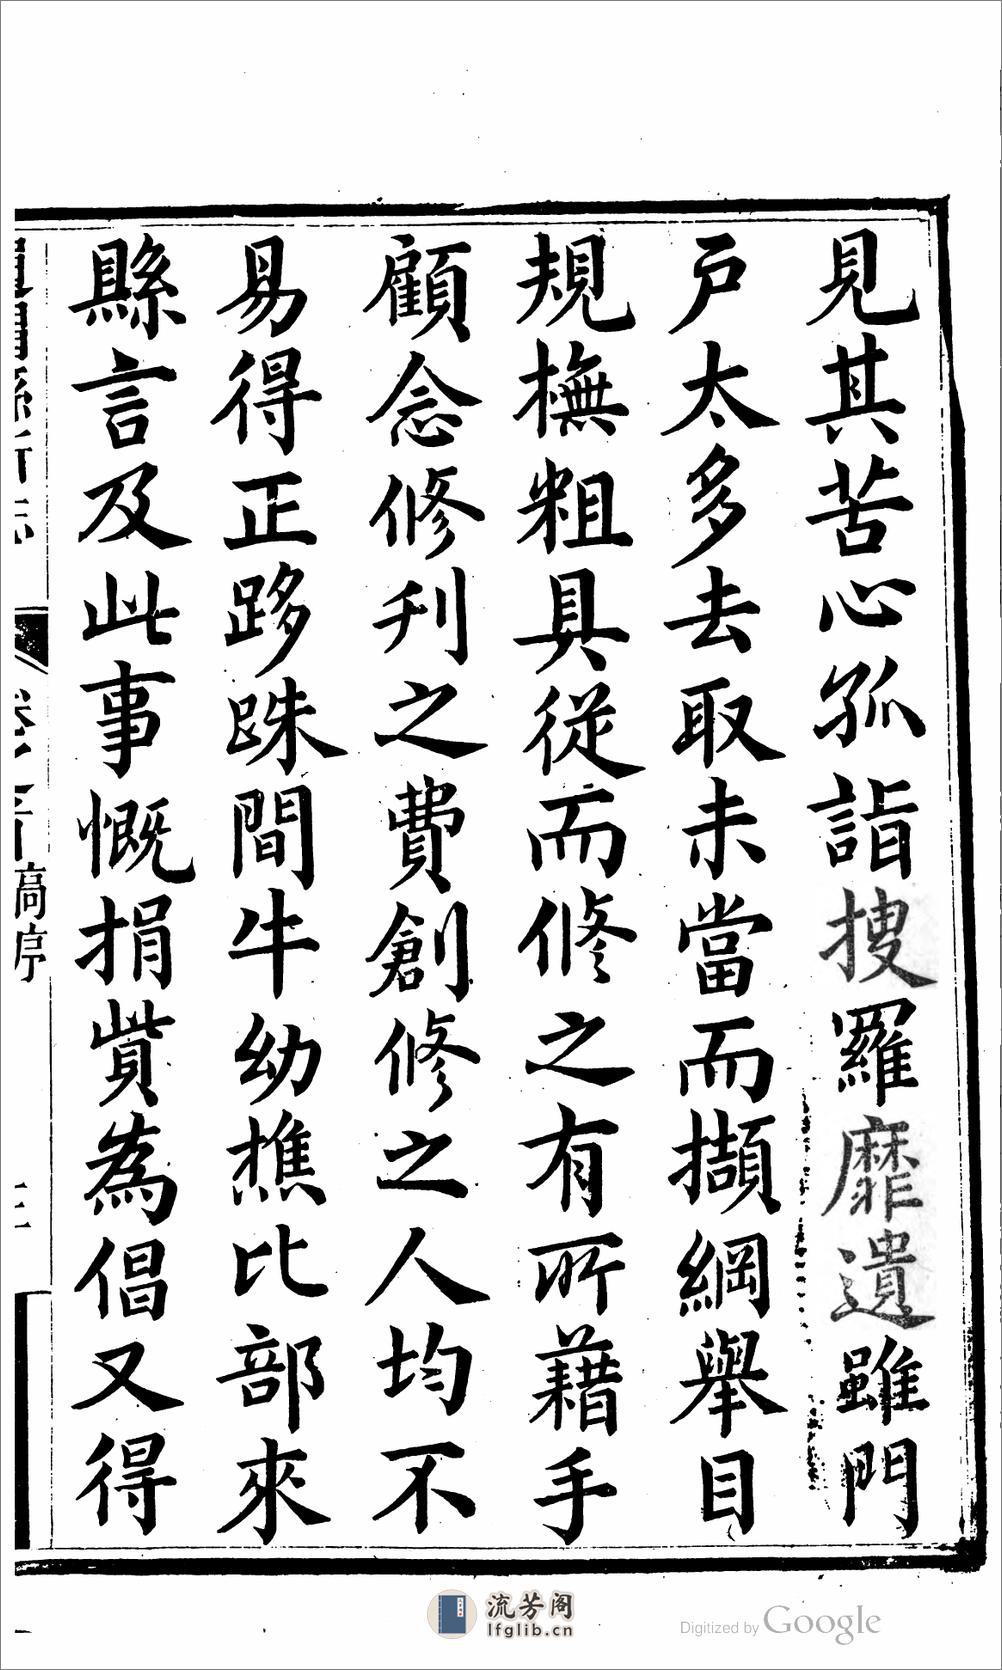 見其苦心孤詣搜羅靡遺雖門
戶太多去取未當而擷綱舉目
規橅粗具從而修之有所藉手
顧念修刋之費創修之人均不
易得正跢跦間牛幼樵比部來
縣言及此事慨捐貲為倡又得
縣新志
高序
流芳阁
lfglib.cn
Digitized by Google